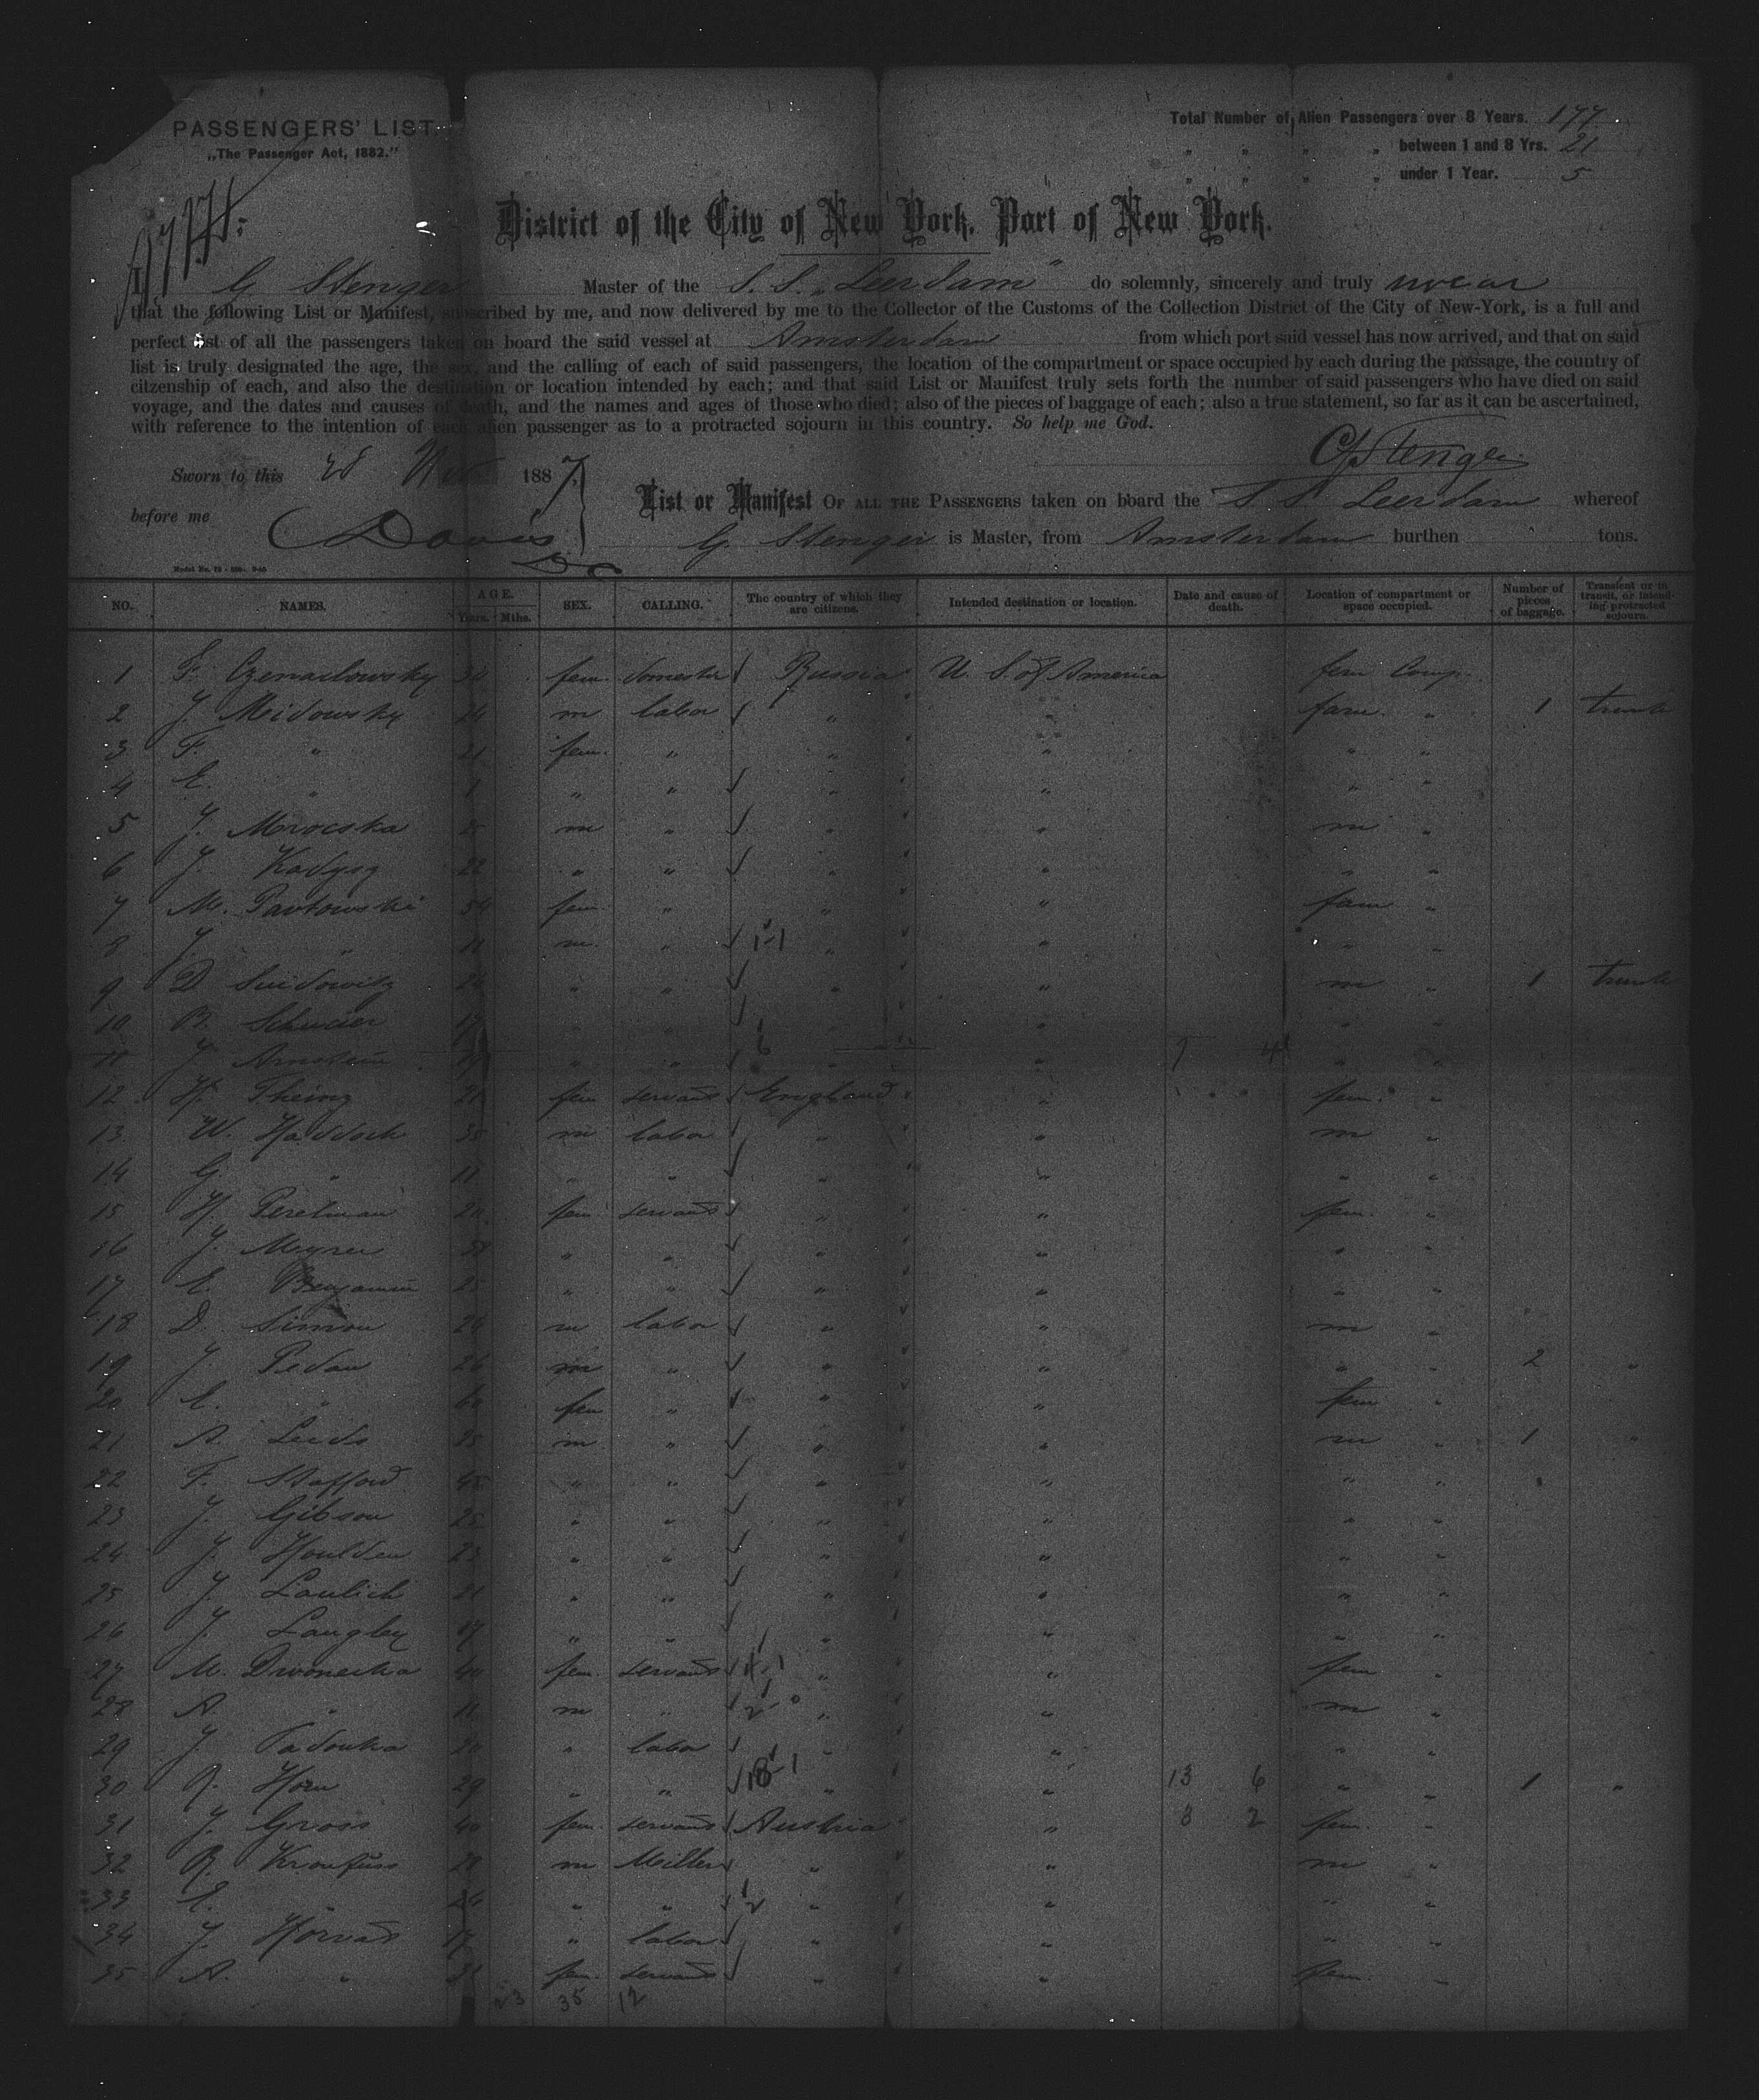 PASSENGERS' LIST.
„The Passenger Act, 1882."
Total Number of Alien Passengers over 8 Years. 177
„ „ „ „ between 1 and 8 Yrs. 21
„ „ „ „ under 1 Year. 5
District of the City of New York, Part of New York.
I, G. Stenger Master of the S. S. „Leerdam" do solemnly, sincerely and truly swear
that the following List or Manifest, subscribed by me, and now delivered by me to the Collector of the Customs of the Collection District of the City of New-York, is a full and
perfect list of all the passengers taken on board the said vessel at Amsterdam from which port said vessel has now arrived, and that on said
list is truly designated the age, the sex, and the calling of each of said passengers, the location of the compartment or space occupied by each during the passage, the country of
citzenship of each, and also the destination or location intended by each; and that said List or Manifest truly sets forth the number of said passengers who have died on said
voyage, and the dates and causes of death, and the names and ages of those who died; also of the pieces of baggage of each; also a true statement, so far as it can be ascertained,
with reference to the intention of each alien passenger as to a protracted sojourn in this country. So help me God.
G Stenger
Sworn to this 28 Nov 1887
before me Davis
List or Manifest OF ALL THE PASSENGERS taken on bboard the S. S. Leerdam whereof
G. Stenger is Master, from Amsterdam burthen tons.
NO. NAMES. AGE. Years. Mths. SEX. CALLING. The country of which they are citizens. Intended destination or location. Date and cause of death. Location of compartment or space occupied. Number of pieces of baggage. Transient or in transit, or intending protracted sojourn.
1 F. Czenaclowsky 30 fem. domestic Russia U. S. of America fem Comp.
2 J. Meidowsky 24 m labor „ „ fam. „ 1 trunk
3 F. „ 21 fem. „ „ „ „ „
4 E. „ 1 „ „ „ „ „ „
5 J. Mrocska 25 m „ „ „ m „
6 J. Kadysz 22 „ „ „ „ „ „
7 M. Pavtowski 54 fem. „ „ „ fam „
8 J. „ 11 m. „ „ „ „ „
9 D. Suidowitz 24 „ „ „ „ m „ 1 trunk
10 B. Schucier 17 „ „ „ „ „ „
11 J. Arnstein „ „ „ „ „
12 H. Theinz 21 fem servant England „ fem. „
13 W. Haddock 35 m labor „ „ m „
14 G. „ 11 „ „ „ „ „ „
15 H. Perelman 20 fem. servant „ „ fem. „
16 J. Meyner „ „ „ „ „ „
17 E. Benjamin 25 „ „ „ „ „ „
18 D. Simon 24 m labor „ „ m „
19 J. Pedan 26 m „ „ „ „ „ 2 „
20 E. „ 60 fem „ „ „ fem „
21 A. Leeds 25 m „ „ „ m „ 1 „
22 F. Stafford 45 „ „ „ „ „ „
23 J. Gibson 25 „ „ „ „ „ „
24 J. Houlden 23 „ „ „ „ „ „
25 J. Laulich 21 „ „ „ „ „ „
26 J. Langley 17 „ „ „ „ „ „
27 M. Dwonecka 40 fem. servant „ „ fem „
28 A. „ 11 m „ „ „ m „
29 J. Padouka 20 „ labor „ „ „ „
30 R. Horn 29 „ „ „ „ 13 6 „ „ 1 „
31 J. Gross 40 fem. servant Austria „ 8 2 fem. „
32 R. Kronfuss 28 m Miller „ „ m „
33 E. „ 26 „ „ „ „ „ „
34 J. Horvad 17 „ labor „ „ „ „
35 A. „ fem. servant „ „ fem. „
23 35 12